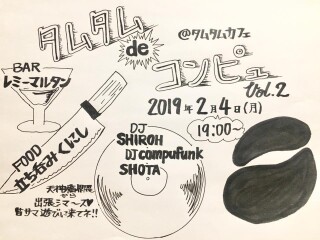 タムタム
de
@タムタムカフェ
コンピュ
Vol.2
BAR
レミーマルタン
2019年2月4日(月)
19:00~
FOOD
立ち呑みくにし
DJ
SHIROH
DJ compufunk
SHOTA
から
出張シマ〜ス♡
皆サマ遊びに来てネ!!